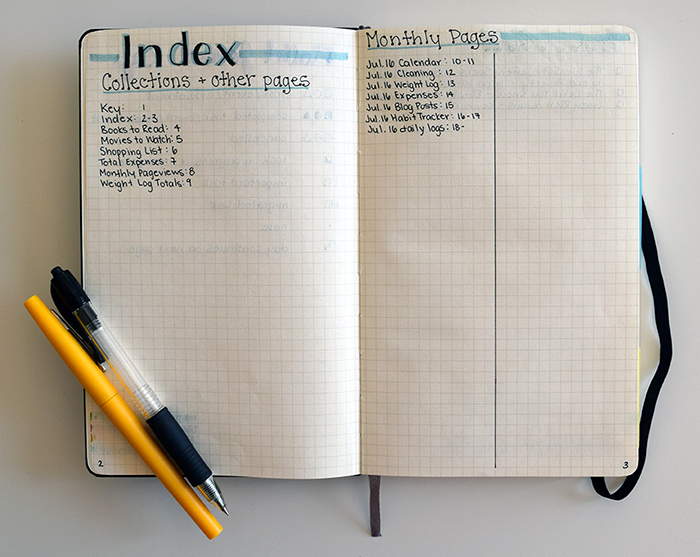 Index
Collections + other pages
Key: 1
Index: 2-3
Books to Read: 4
Movies to Watch: 5
Shopping List: 6
Total Expenses: 7
Monthly Pageviews: 8
Weight Log Totals: 9
2
Monthly Pages
Jul. 16 Calendar: 10-11
Jul. 16 Cleaning: 12
Jul. 16 Weight Log: 13
Jul. 16 Expenses: 14
Jul. 16 Blog Posts: 15
Jul. 16 Habit Tracker: 16-17
Jul. 16 daily logs: 18-
3